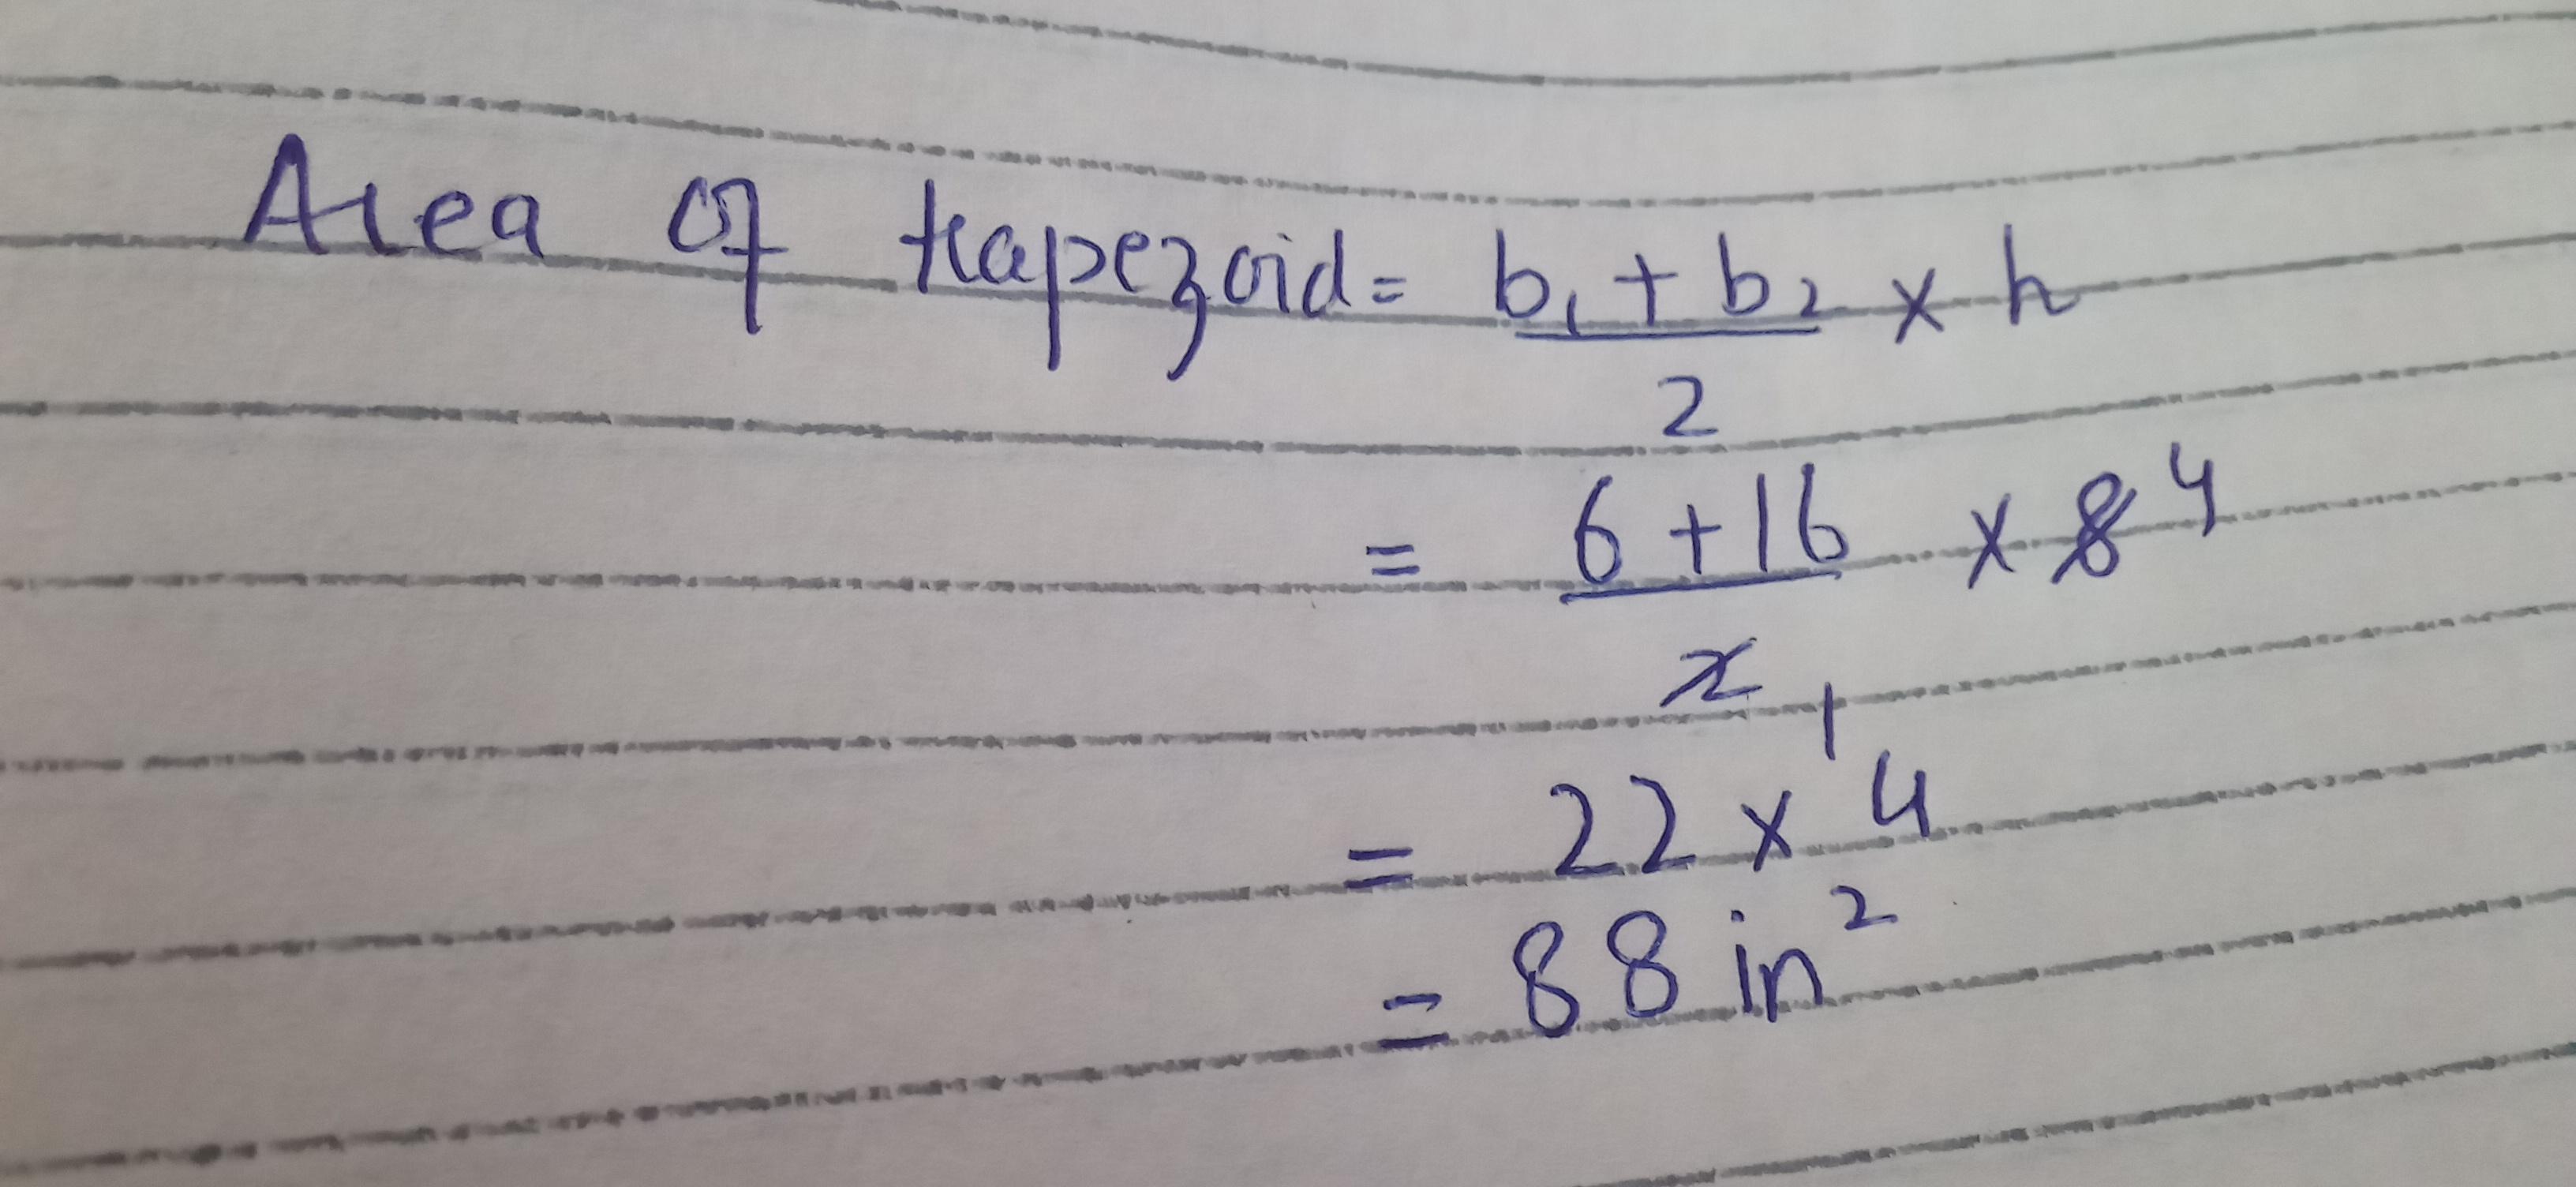 Area of trapezoid = b₁ + b₂ / 2 × h
= 6 + 16 / 2 1 × 8 4
= 22 × 4
= 88 in²